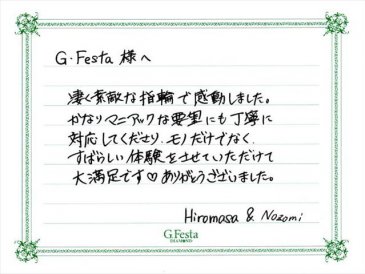 G.Festa 様へ
凄く素敵な指輪で感動しました。
かなりマニアックな要望にも丁寧に
対応してくださり、モノだけでなく、
すばらしい体験をさせていただけて
大満足です♡ありがとうございました。
Hiromasa & Nozomi
G.Festa
DIAMOND